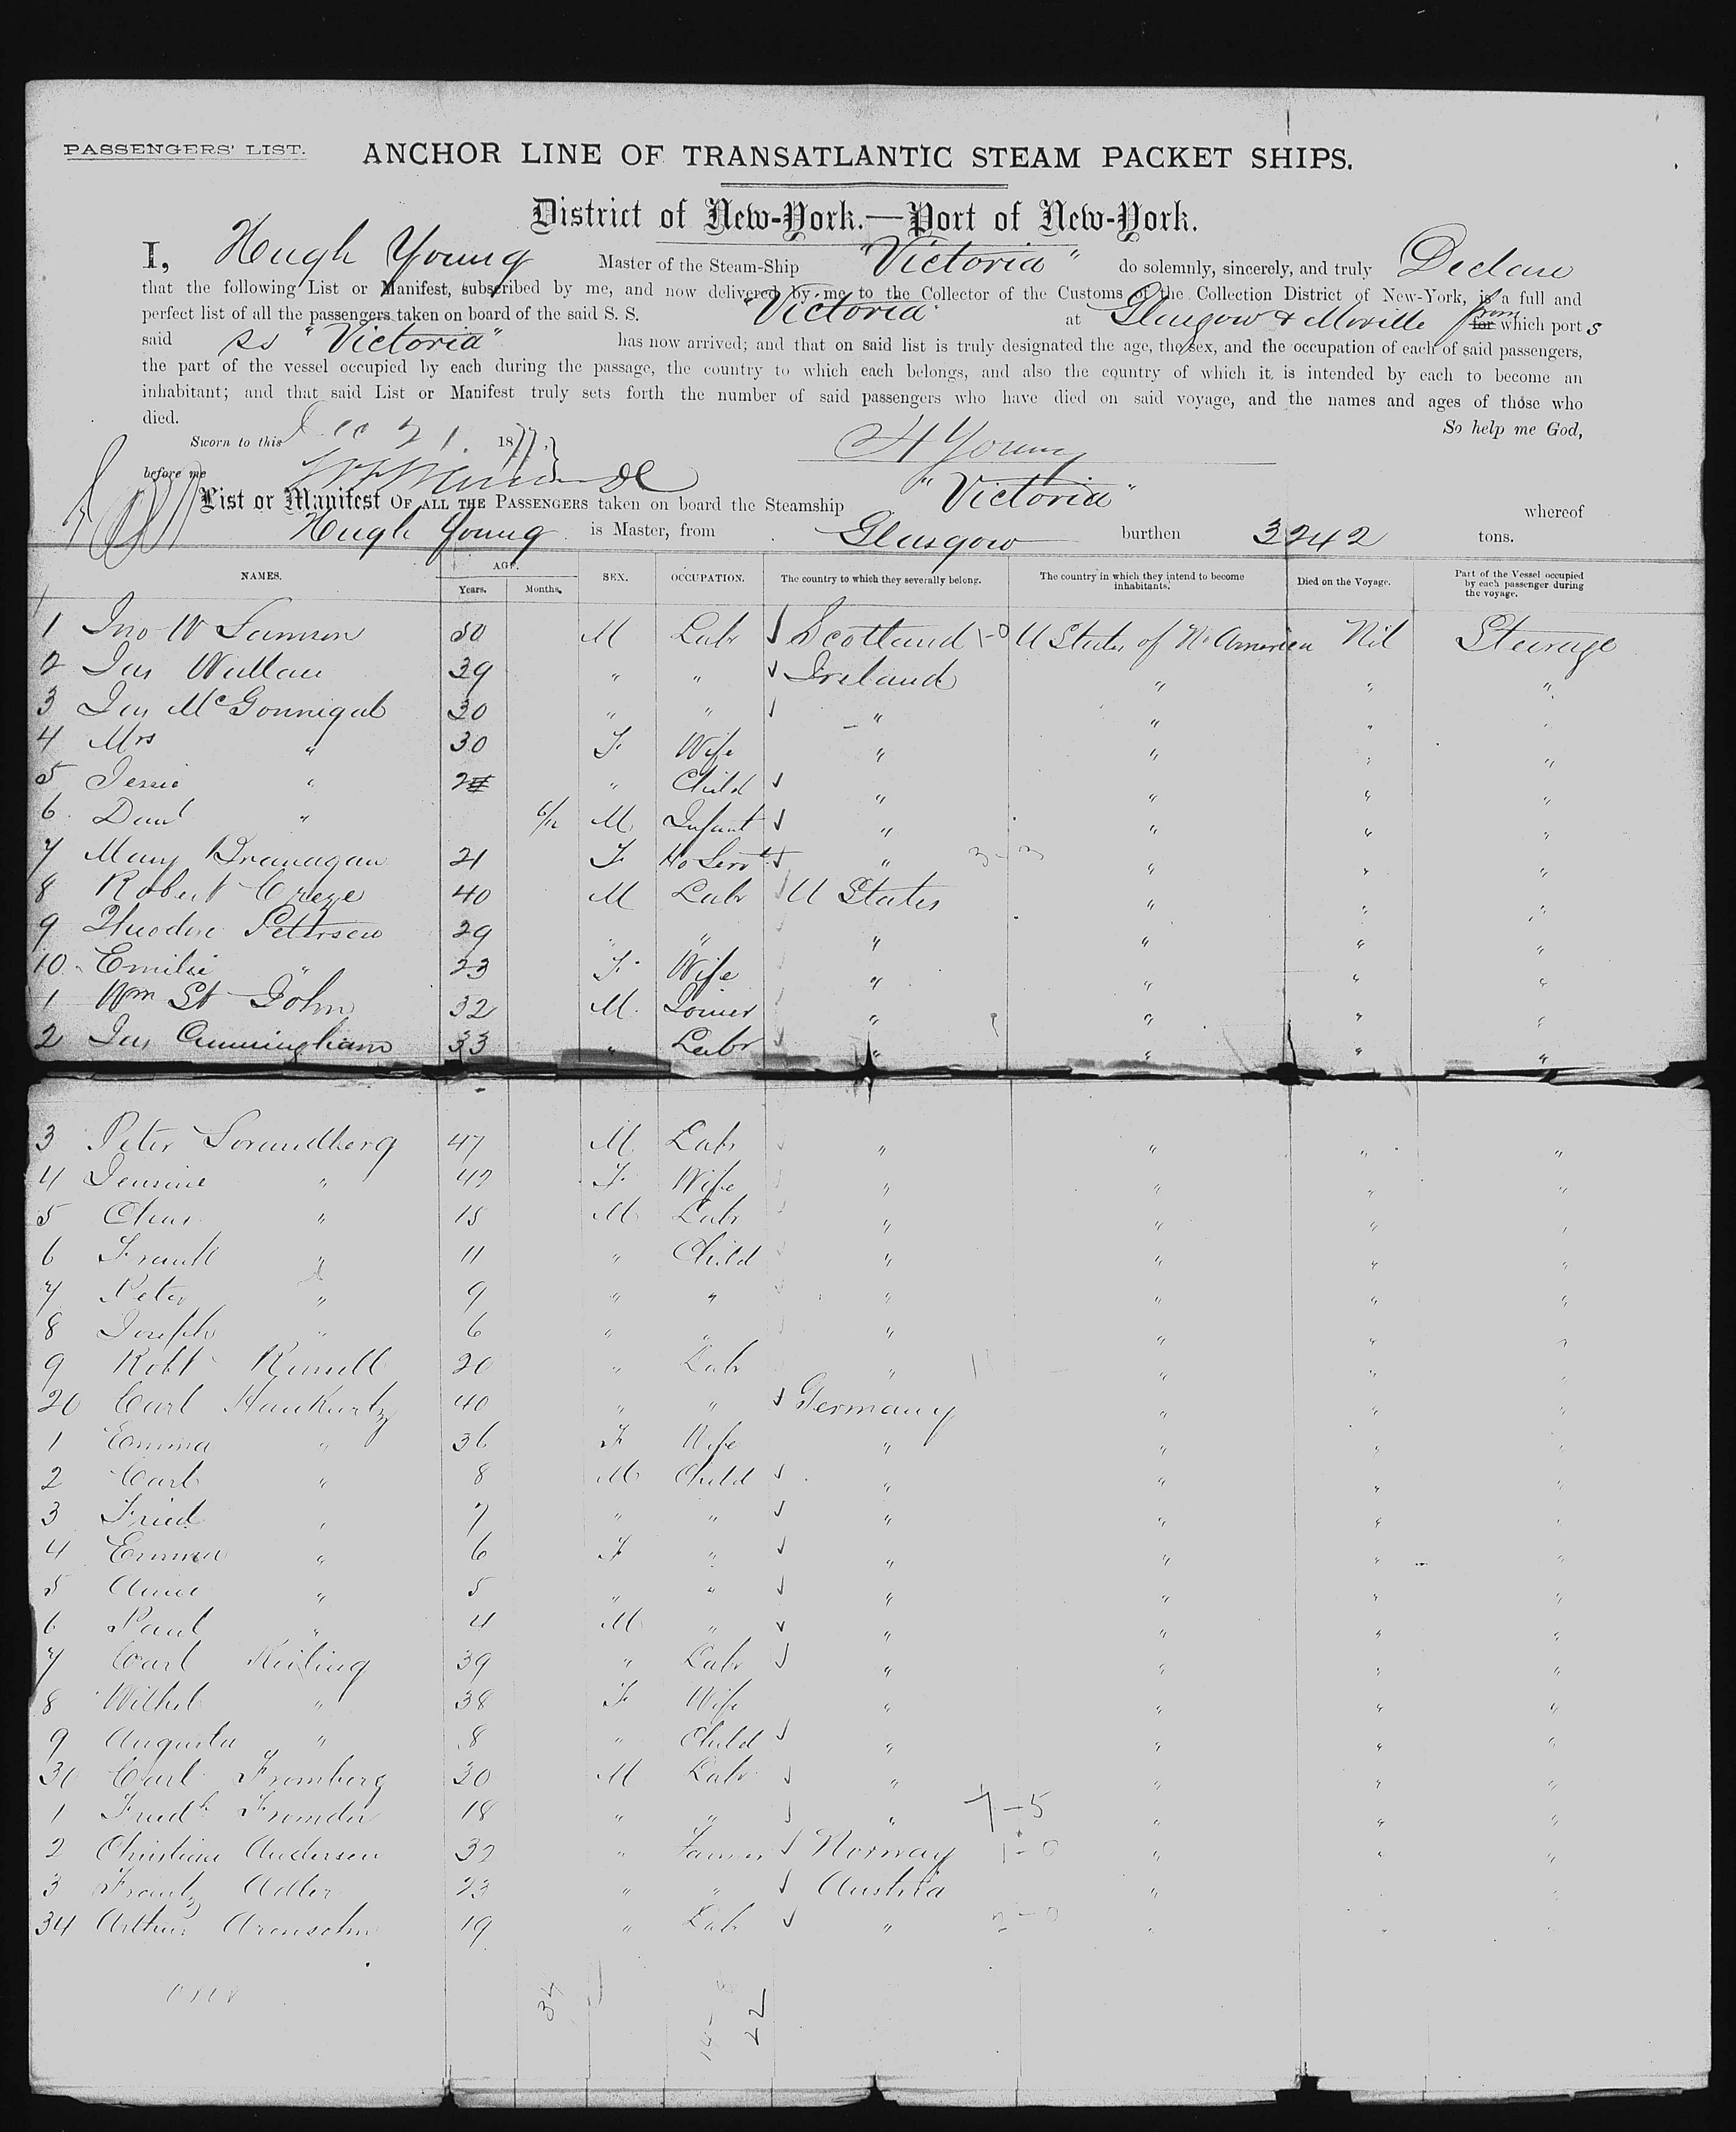 PASSENGERS' LIST.
ANCHOR LINE OF TRANSATLANTIC STEAM PACKET SHIPS.
District of New-York.—Port of New-York.
I, Hugh Young Master of the Steam-Ship "Victoria" do solemnly, sincerely, and truly Declare
that the following List or Manifest, subscribed by me, and now delivered by me to the Collector of the Customs of the Collection District of New-York, is a full and
perfect list of all the passengers taken on board of the said S. S. "Victoria" at Glasgow & Moville from for which port s
said ss "Victoria" has now arrived; and that on said list is truly designated the age, the sex, and the occupation of each of said passengers,
the part of the vessel occupied by each during the passage, the country to which each belongs, and also the country of which it is intended by each to become an
inhabitant; and that said List or Manifest truly sets forth the number of said passengers who have died on said voyage, and the names and ages of those who
died.
So help me God,
Sworn to this Dec 21. 1877. H Young
before me
List or Manifest OF ALL THE PASSENGERS taken on board the Steamship "Victoria" whereof
Hugh Young is Master, from Glasgow burthen 3242 tons.
NAMES. AGE. Years. Months. SEX. OCCUPATION. The country to which they severally belong. The country in which they intend to become inhabitants. Died on the Voyage. Part of the Vessel occupied by each passenger during the voyage.
1 Jno W 50 M Labr Scotland 1-0 U States of N. America Nil Steerage
2 Jas Wallace 39 " " Ireland " " "
3 Jas McGonnigal 30 " " " " "
4 Mrs " 30 F Wife " " " "
5 Jessie " 2 " Child " " " "
6 Danl " 6/12 M Infant " " " "
7 Mary Branagan 21 F Ho Servt " 3-3 " " "
8 Robert 40 M Labr U States " " "
9 Theodore Pettersen 29 " " " " " "
10 Emilie " 23 F Wife " " " "
1 Wm St John 32 M Joiner " " " "
2 Jas Cunningham 33 " Labr " " " "
3 Peter 47 M Labr " " " "
4 " 42 F Wife " " " "
5 Chas " 15 M Labr " " " "
6 Frank " 11 " Child " " " "
7 Peter " 9 " " " " " "
8 Joseph " 6 " " " " " "
9 Robt Russell 20 " Labr " " " "
20 Carl 40 " " Germany " " "
1 Emma " 36 F Wife " " " "
2 Carl " 8 M Child " " " "
3 Fried " 7 " " " " " "
4 Emma " 6 F " " " " "
5 " 5 " " " " " "
6 Paul " 4 M " " " " "
7 Carl Keiling 39 " Labr " " " "
8 Wilhel " 38 F Wife " " " "
9 Augusta " 8 " Child " " " "
30 Carl Fromberg 30 M Labr " " " "
1 Friedk 18 " " " 7-5 " " "
2 Christian Andersen 32 " Farmer Norway 1-0 " " "
3 Frantz Adler 23 " " Austria "
34 Arthur Aronsohn 19 " Labr " 2-0
34 22